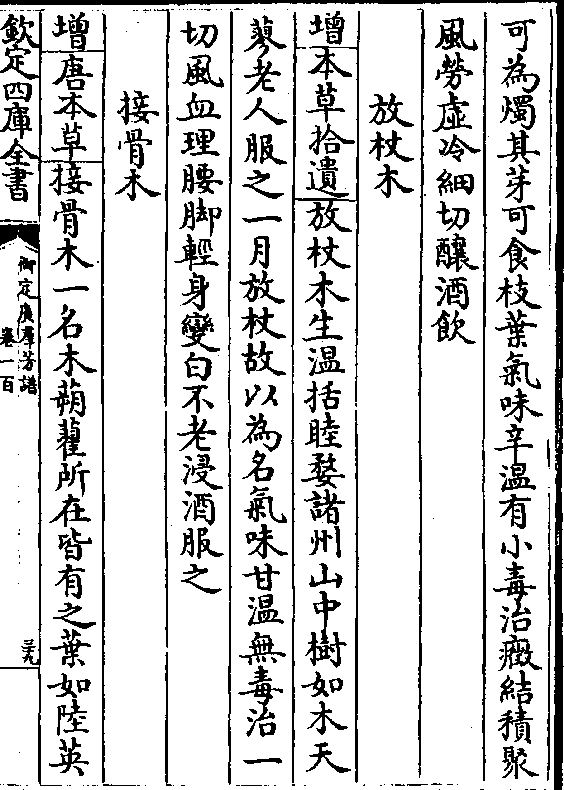 可為燭其芽可食枝葉氣味辛溫有小毒治癥結積聚
風勞虛冷細切釀酒飲
放杖木
增本草拾遺放杖木生溫括睦婺諸州山中樹如木天
蓼老人服之一月放杖故以為名氣味甘溫無毒治一
切風血理腰脚輕身變白不老浸酒服之
接骨木
增唐本草接骨木一名木蒴藋所在皆有之葉如陸英
欽定四庫全書
御定廣群芳譜
卷一百
三九